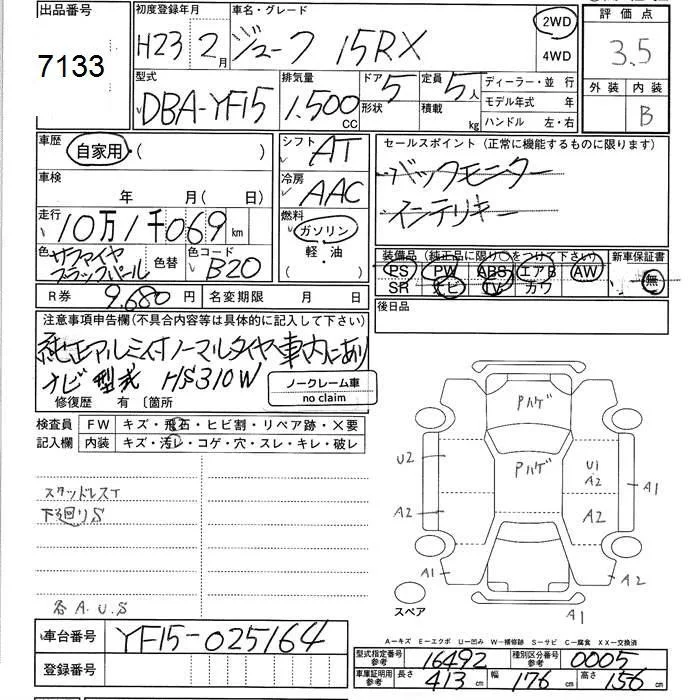 出品番号
7133
初度登録年月
H23 2月
車名・グレード
ジューク 15RX
2WD
4WD
評価点
3.5
外装 内装
B
型式
DBA-YF15
排気量
1.500 CC
ドア 5
形状
定員 5人
積載 kg
ディーラー・並 行
モデル年式 年
ハンドル 左・右
車歴
自家用・( )
車検
年 月( 日)
走行
10万1千069 km
色 サファイヤ
ブラックパール
色替
色コード
B20
シフト
AT
冷房
AAC
燃料
ガソリン
軽・油
( )
セールスポイント (正常に機能するものに限ります)
バックモニター
インテリキー
装備品 (純正品に限り○をつけて下さい)
新車保証書
PS PW ABS エアB AW
SR ナビ TV カワ
無
R券 9.680 円
名変期限 月 日
後日品
注意事項申告欄(不具合内容等は具体的に記入して下さい)
純正アルミ付ノーマルタイヤ車内にあり
ナビ型式 HS310W
修復歴 有 〔箇所
ノークレーム車
no claim
検査員 FW キズ・飛石・ヒビ割・リペア跡・X要
記入欄 内装 キズ・汚レ・コゲ・穴・スレ・キレ・破レ
スタッドレスT
下廻りS
各A.U.S
Pハゲ
Pハゲ
U2
U1
A2
A1
A2
A2
A1
A2
A1
スペア
A―キズ E―エクボ U―凹み W―補修跡 S―サビ C―腐食 XX―交換済
車台番号
YF15-025164
登録番号
型式指定番号
参考
16492
種別区分番号
参考
0005
車庫証明用
参考
長さ 413 cm
幅 176 cm
高さ 156 cm